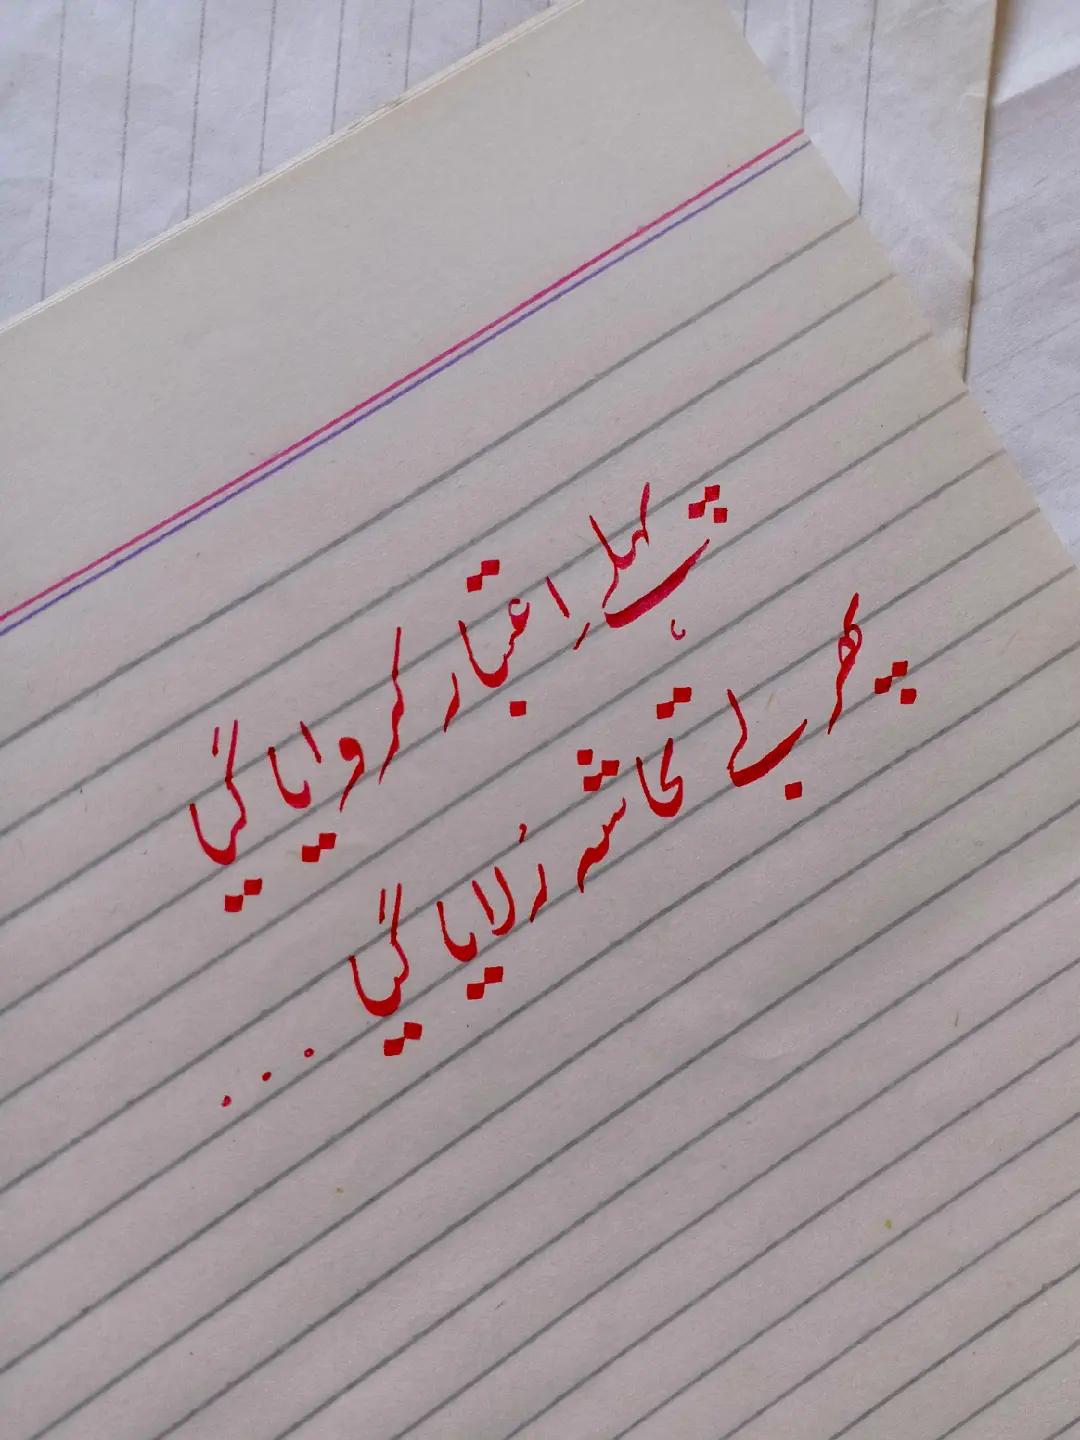 پہلے اِعتبار کروایا گیا
پھر بے تحاشہ رُلایا گیا...